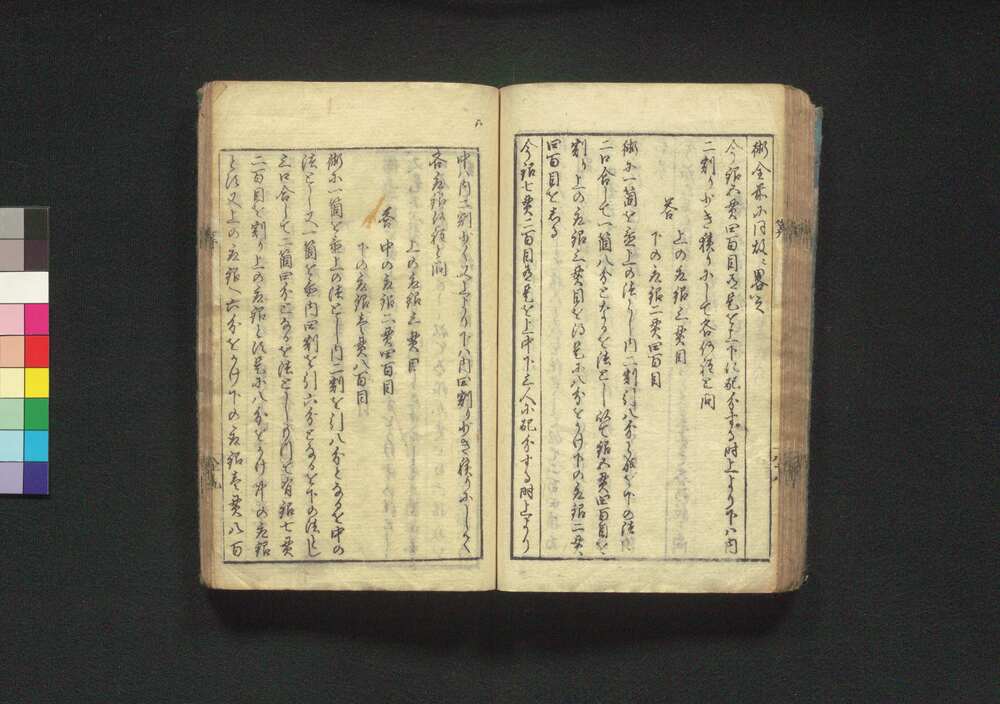 術全前ニ同故ニ畧ス
今銀五貫四百目有是を上下に配分する時上より下ハ内
二割少き積りにして各何程と問
答 上の者銀三貫目
下の者銀二貫四百目
術に一箇を置上の法とし内二割引八分と成を下の法
二口合して一箇八分となるを法とし以て銀五貫四百目を
割り上の者銀三貫目を得是に八分をかけ下の者銀二貫
四百目を知る
今銀七貫二百目有是を上中下三人に配分する時上より
中ハ内二割少く又上より下ハ内四割少き積りにして
各者銀何程と問
答 上の者銀三貫目
中の者銀二貫四百目
下の者銀壱貫八百目
術に一箇を置上の法とし内二割を引八分となるを中の
法とし又一箇を置内四割を引六分となるを下の法とし
三口合して二箇四分となるを法とし以て有銀七貫
二百目を割り上の者銀を得是に八分をかけ中の者銀
とし又上の者銀へ六分をかけ下の者銀壱貫八百